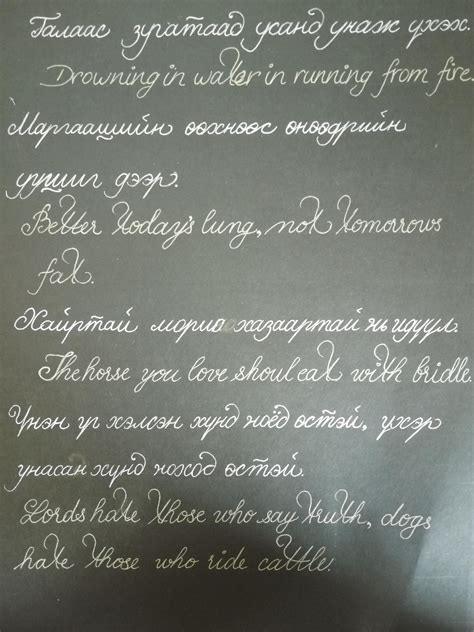 Галаас зугатаад усанд унаж үхэх.
Drowning in water in running from fire.
Маргаашийн өөхнөөс өнөөдрийн
уушиг дээр.
Better today's lung, not tomorrows
fat.
Хайртай морио хазаартай нь идүүл.
The horse you love shoul eat with bridle.
Үнэн үг хэлсэн хүнд ноёд өстэй, үхэр
унасан хүнд ноход өстэй.
Lords hate those who say truth, dogs
hate those who ride cattle.